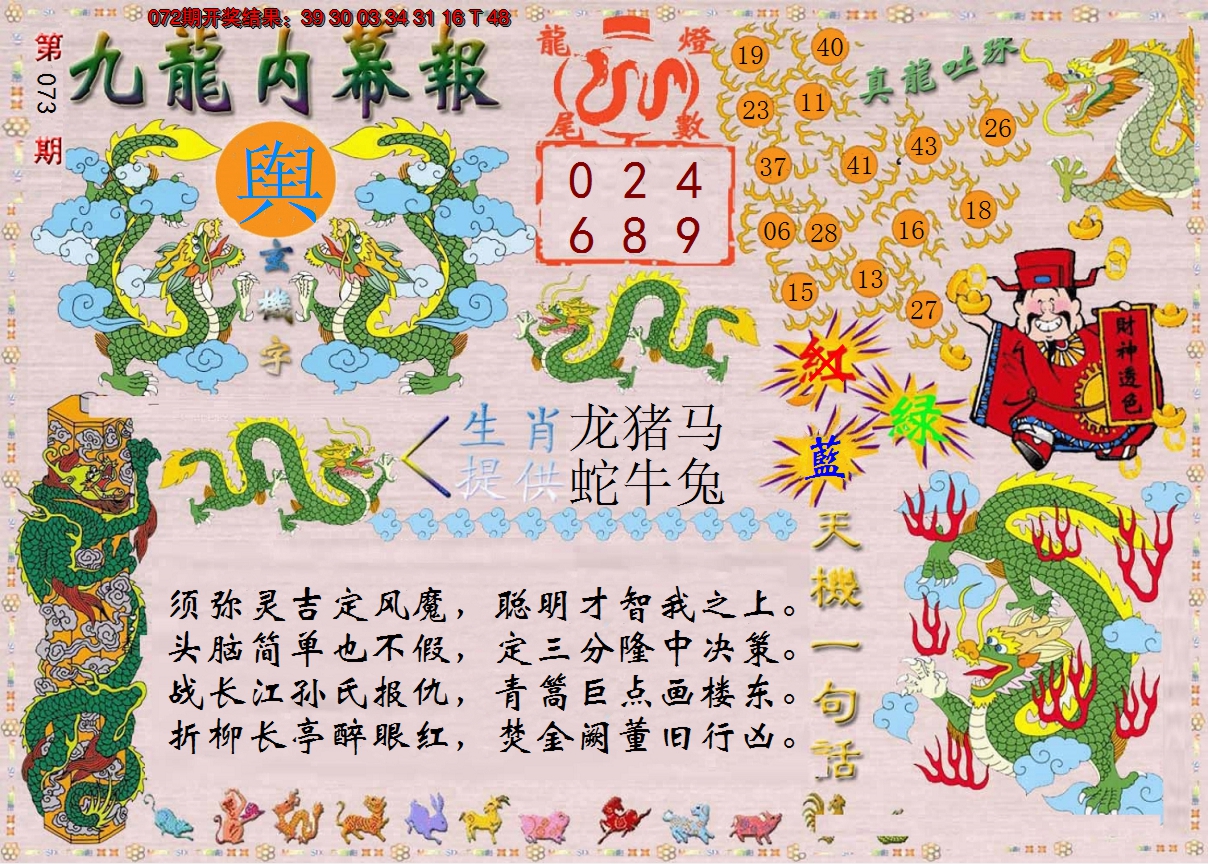 072期开奖结果：39 30 03 34 31 16 T 48
第073期
九龍内幕報
龍燈尾數
0 2 4
6 8 9
真龍吐珠
19 40
23 11
43 26
37 41
06 28 16 18
15 13
27
舆
玄機字
紅
綠
藍
財神透色
生肖 龙猪马
提供 蛇牛兔
天機一句話
须弥灵吉定风魔，聪明才智我之上。
头脑简单也不假，定三分隆中决策。
战长江孙氏报仇，青篙巨点画楼东。
折柳长亭醉眼红，焚金阙董旧行凶。